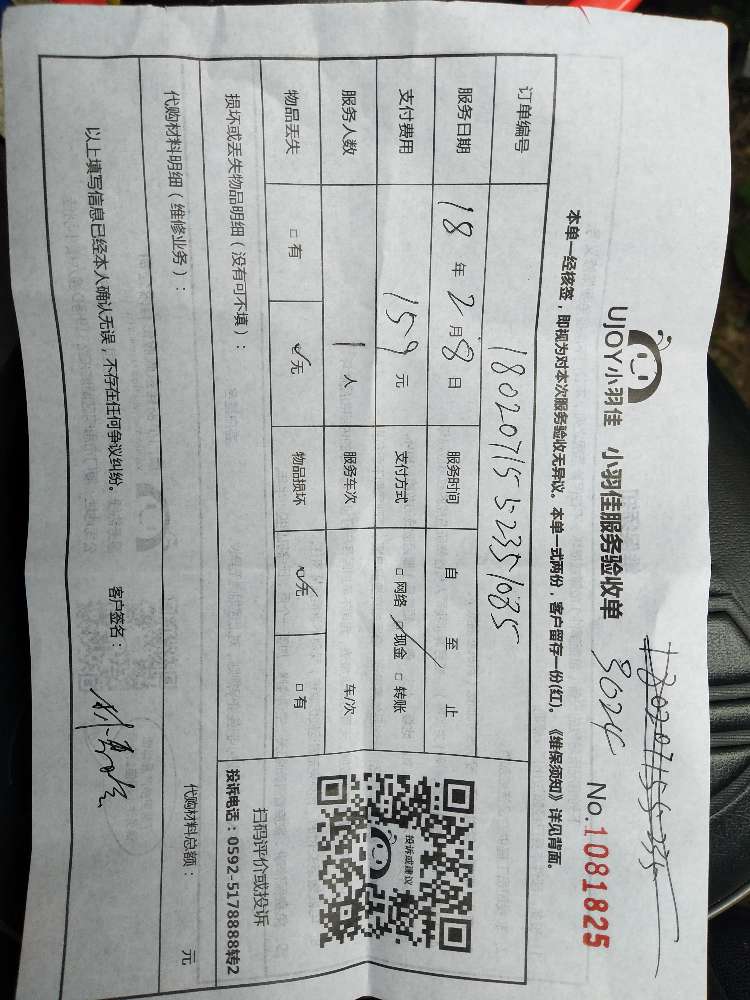 UJOY小羽佳 小羽佳服务验收单 No.1081825
3024
本单一经核签，即视为对本次服务验收无异议。本单一式两份，客户留存一份(红)。《维保须知》详见背面。
订单编号 1802071552351085
服务日期 18 年 2 月 8 日 服务时间 自 至 止
支付费用 159 元 支付方式 □网络 □现金 □转账
服务人数 1 人 服务车次 车/次
物品丢失 □有 □无 物品损坏 □无 □有
投诉或建议
扫码评价或投诉
投诉电话：0592-5178888转2
损坏或丢失物品明细（没有可不填）：
代购材料明细（维修业务）： 代购材料总额： 元
以上填写信息已经本人确认无误，不存在任何争议纠纷。 客户签名：